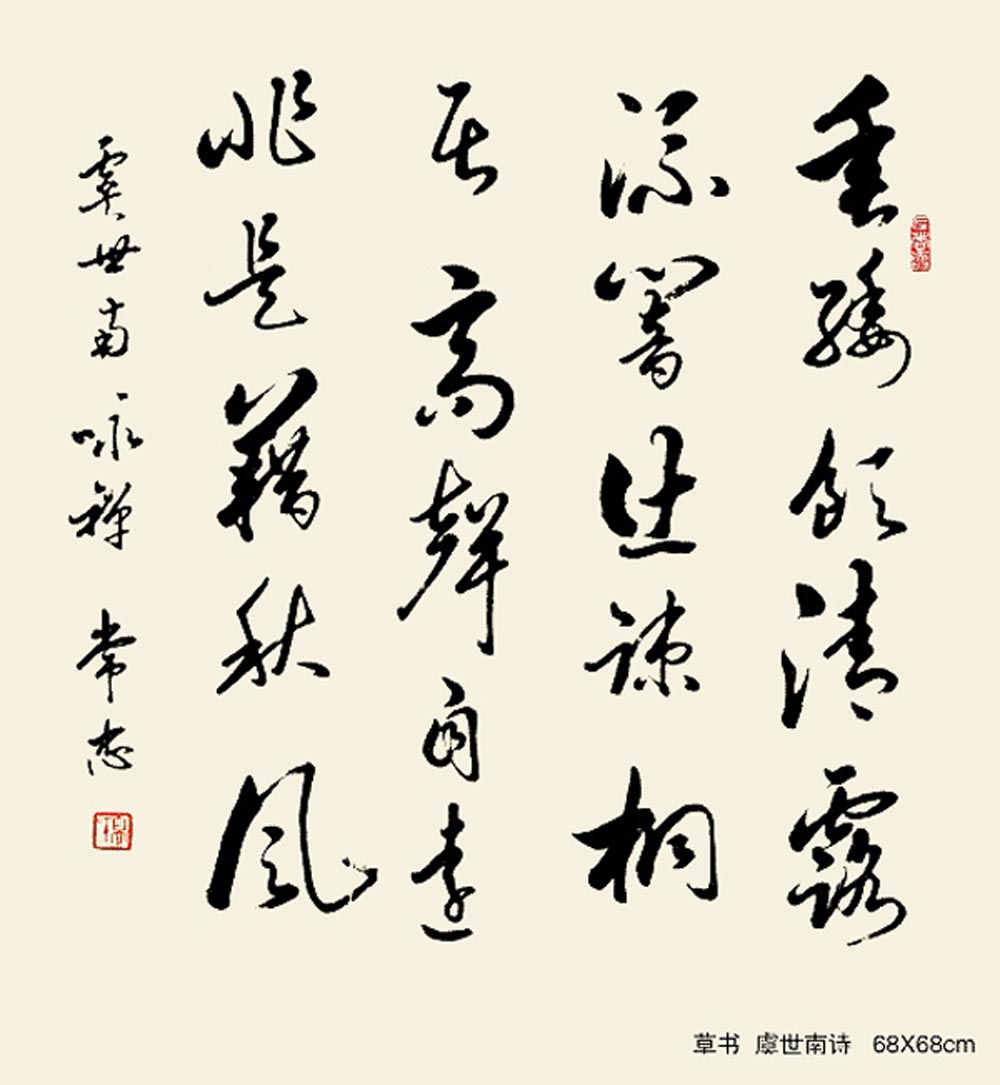 垂緌飲清露
流響出疎桐
居高聲自遠
非是藉秋風
虞世南咏蟬 常志
草书 虞世南诗 68X68cm